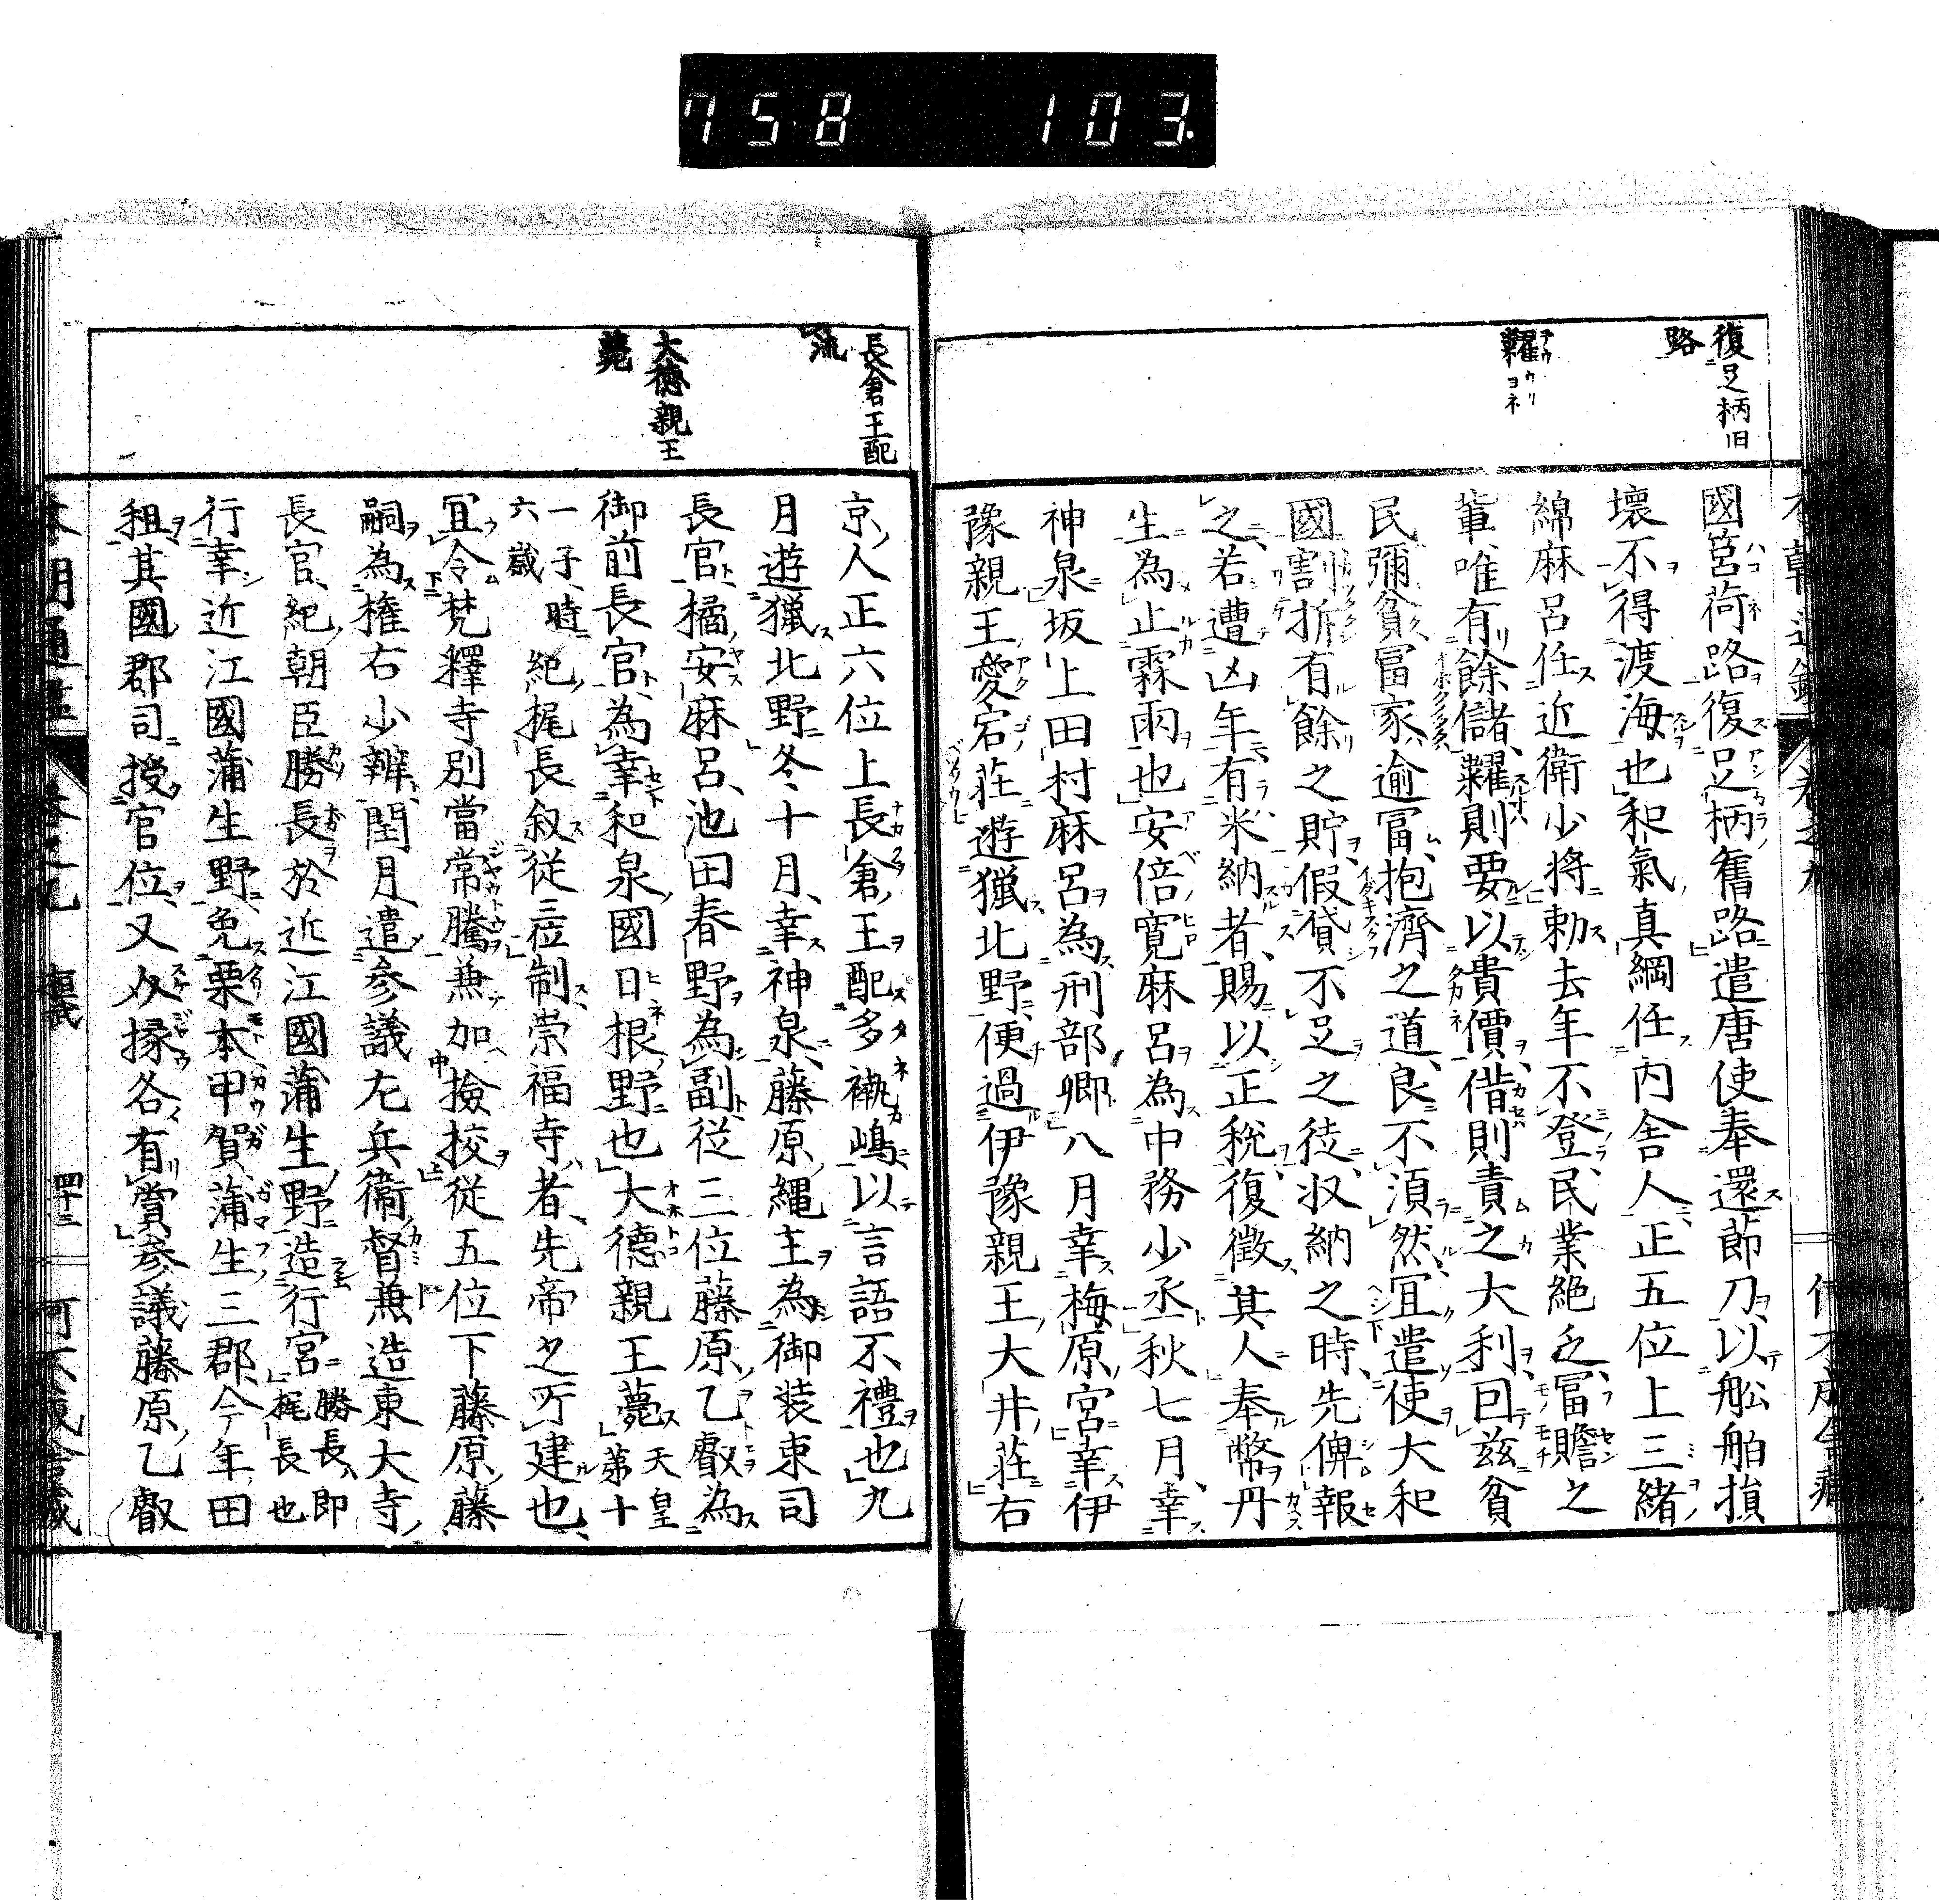 758 103.
復足柄旧
路
糶
國筥荷路復足柄舊路遣唐使奉還節刀以舩舶損
壞不得渡海也和氣真綱任内舎人正五位上三緒
綿麻呂任近衛少将勅去年不登民業絶乏冨贍之
輩唯有餘儲糶則要以貴價借則責之大利回茲貧
民彌貧冨家逾冨抱濟之道良不須然冝遣使大和
國割折有餘之貯假貸不足之徒収納之時先俾報
之若遭凶年有米納者賜以正税復徴其人奉幣丹
生為止霖雨也安倍寛麻呂為中務少丞秋七月幸
神泉坂上田村麻呂為刑部卿八月幸梅原宮幸伊
豫親王愛宕荘遊獵北野便過伊豫親王大井荘右
長倉王配
流
大德親王
薨
京人正六位上長倉王配多褹嶋以言語不禮也九
月遊獵北野冬十月幸神泉藤原縄主為御装束司
長官橘安麻呂池田春野為副從三位藤原乙叡為
御前長官為幸和泉國日根野也大德親王薨天皇第十
一子時六歳紀梶長叙従三位制崇福寺者先帝之所建也
冝令梵釋寺別當常騰兼加撿挍從五位下藤原藤
嗣為権右少辨閏月遣参議左兵衞督兼造東大寺
長官紀朝臣勝長於近江國蒲生野造行宮勝長即梶長也
行幸近江國蒲生野免栗本甲賀蒲生三郡今年田
租其國郡司授官位又外掾各有賞参議藤原乙叡
本朝通鑑 桓武 四十三